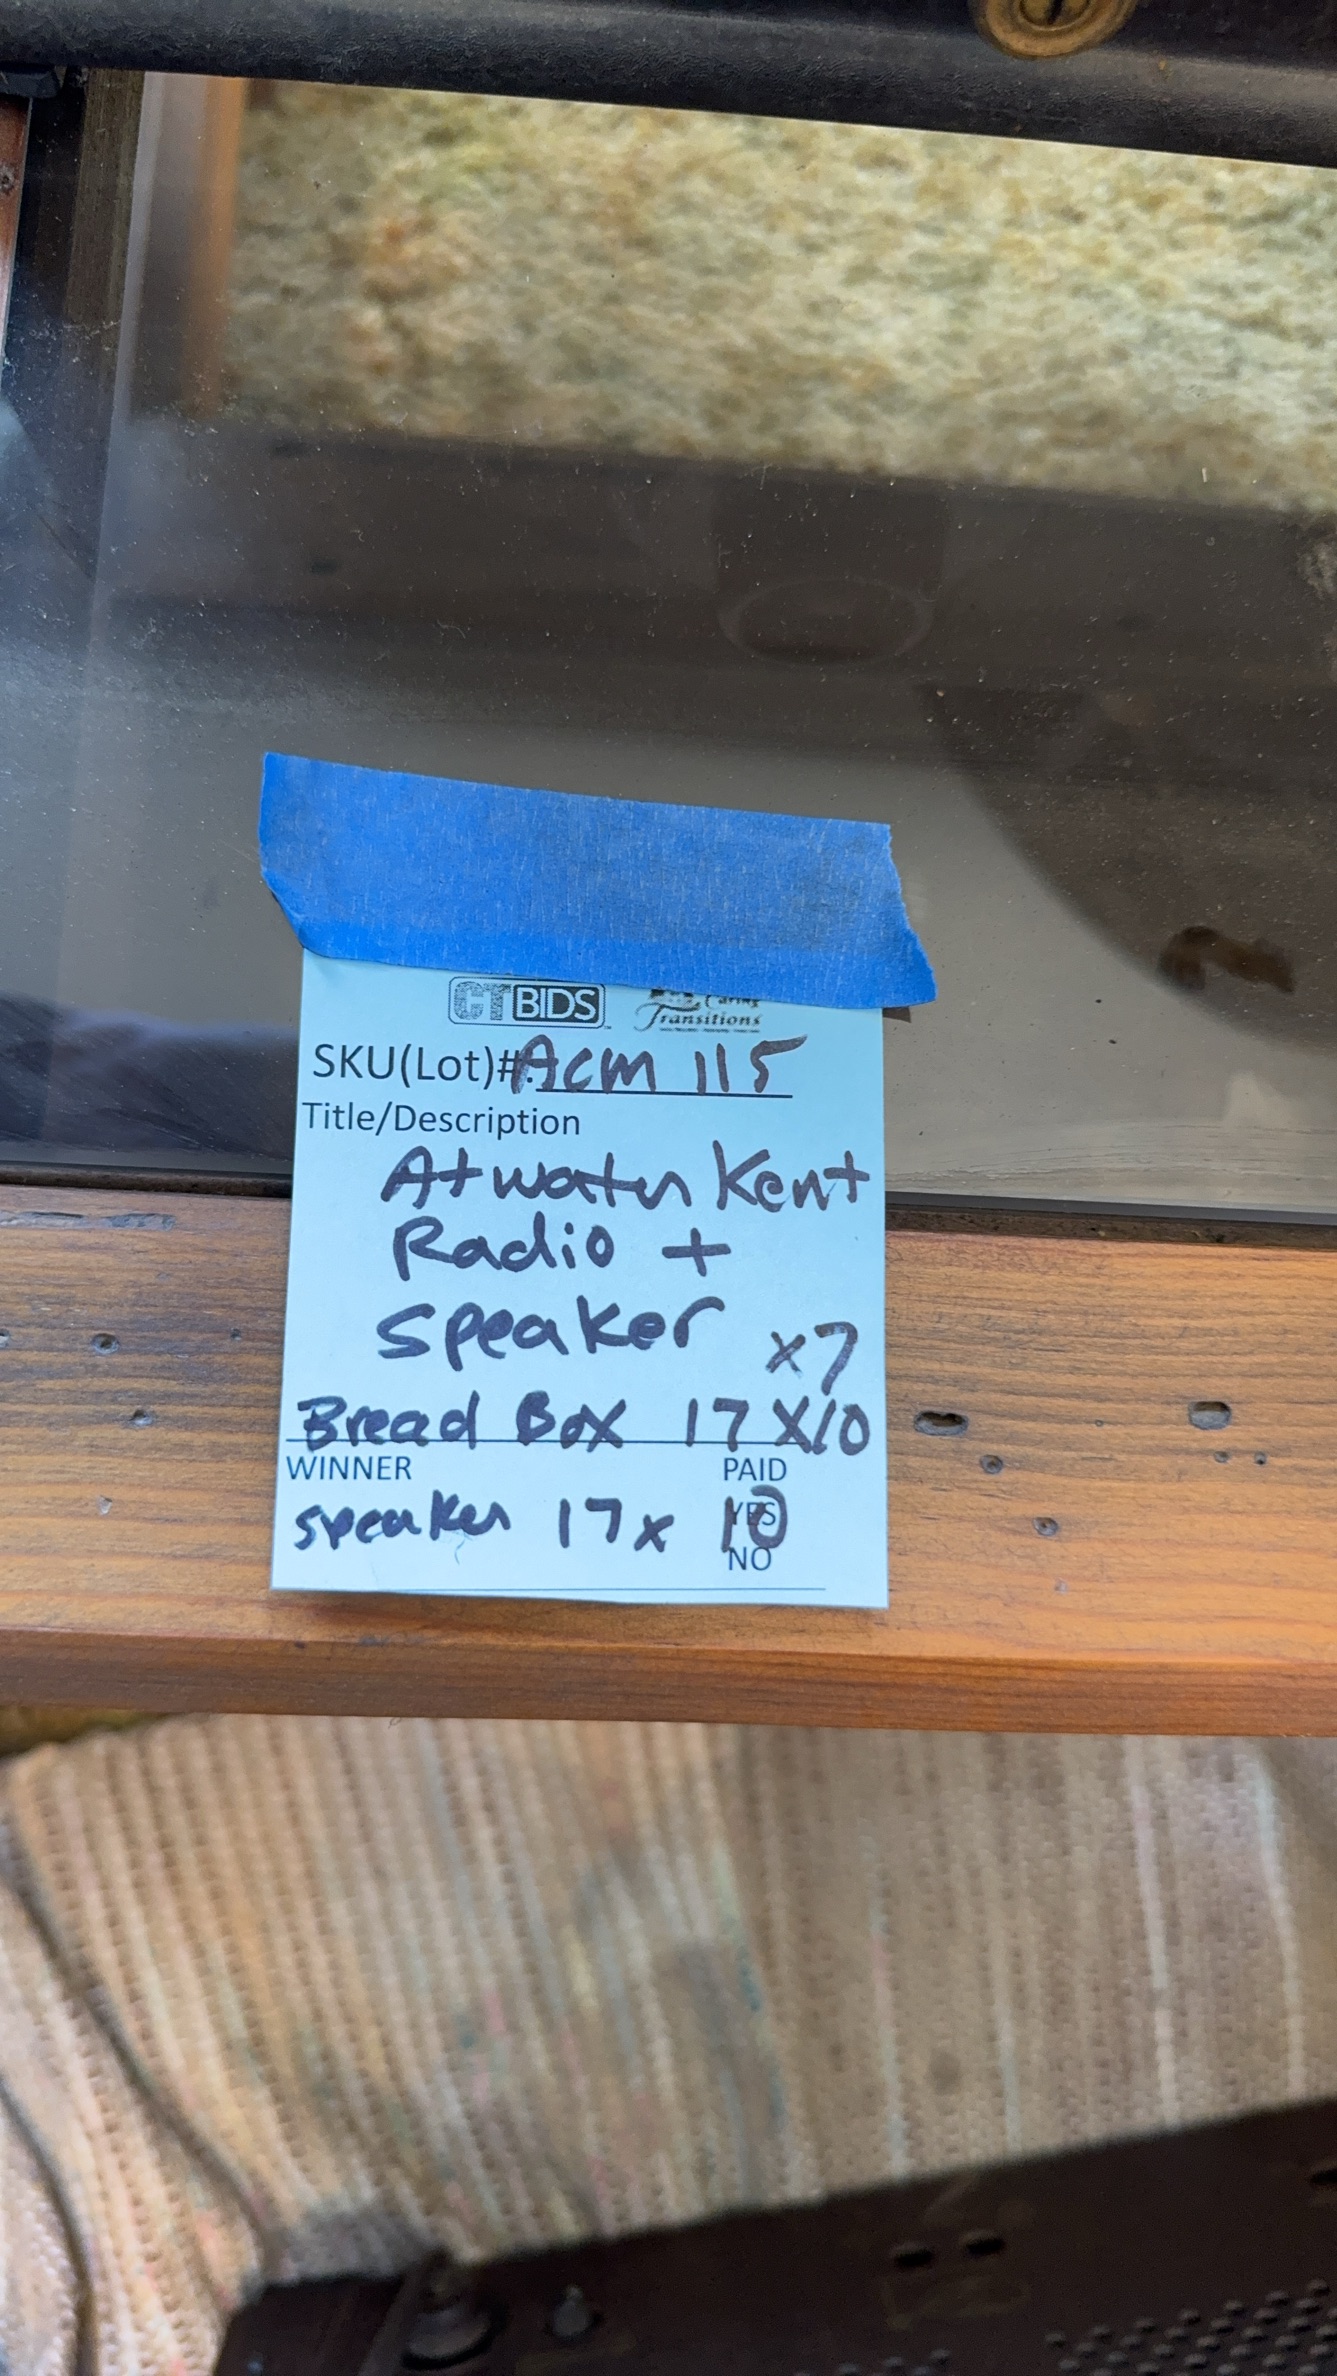 CTBIDS Caring
Transitions
SKU(Lot)#: ACM 115
Title/Description
Atwater Kent
Radio +
speaker
x7
Bread Box 17 X10
WINNER PAID
speaker 17x 10 YES
NO